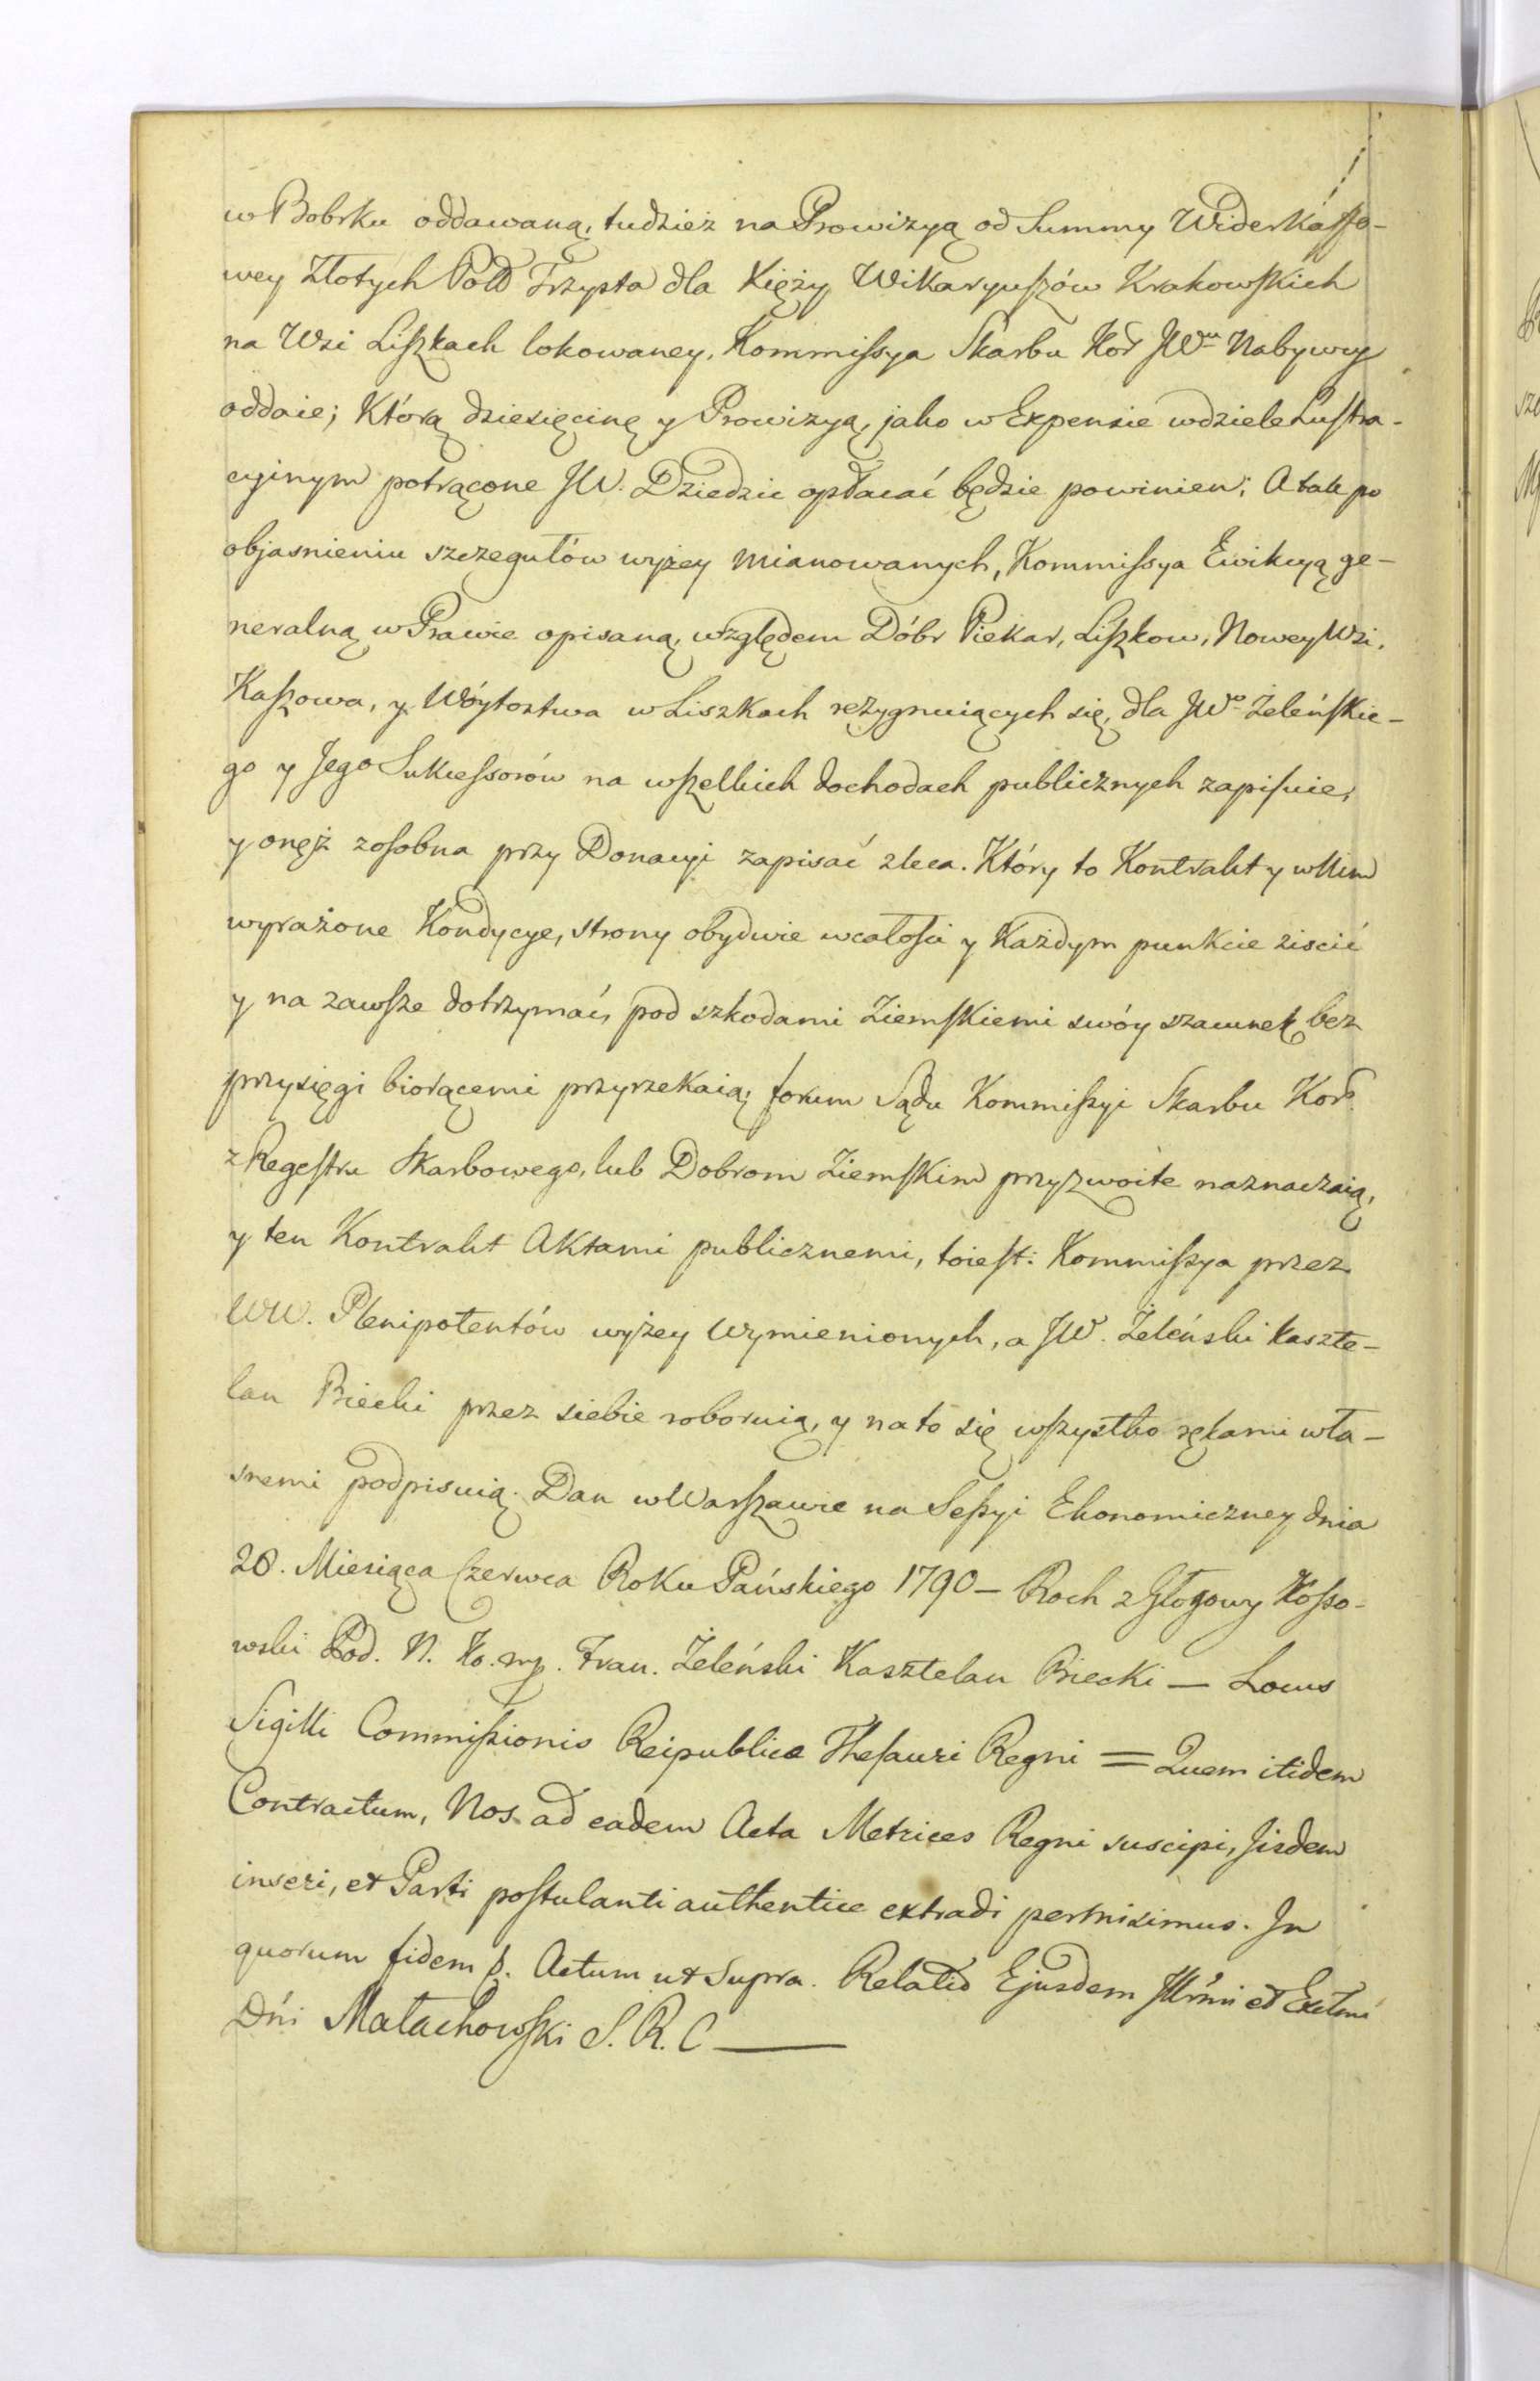 w Bobrku oddawaną, tudzież na Prowizyą od Summy Widerkaſſo-
wey Złotych Pold Trzysta dla Xięży Wikaryuſzów Krakowſkich
na Wsi Liſzkach lokowaney, Kommiſsya Skarbu Kor JWu Nabywcy
oddaie; Którą dziesięcinę y Prowizyą, jako w Expensie w dziele Luſtra-
cyjnym potrącone JW. Dziedzic opłacać będzie powinien; A tak po
objasnieniu szczegułów wyżey mianowanych, Kommiſsya Ewikcyą ge-
neralną w Prawie opisaną, względem Dóbr Piekar, Liſzkow, Nowey Wsi,
Kaſzowa, y Wóytoztwa w Liszkach rezygnuiących się, dla JWo Zeleńſkie-
go y Jego Sukceſsorów na wſzelkich dochodach publicznych zapiſuie,
y onęż zoſobna przy Donacyi zapisać zleca. Który to Kontrakt y w Nim
wyrażone Kondycye, strony obydwie w całoſci y Każdym punkcie ziscić
y na zawſze dotrzymać, pod szkodami Ziemſkiemi swóy szacunek bez
przysięgi biorącemi przyrzekaią; forum Sądu Kommiſsyi Skarbu Kor
z Regeſtru Skarbowego, lub Dobrom Ziemſkim przyzwoite naznaczaią,
y ten Kontrakt Aktami publicznemi, toieſt: Kommiſsya przez
WW. Plenipotentów wyżey wymienionych, a JW. Żeleński kaszte-
lan Biecki przez siebie roboruią, y na to się wſzystko rękami wła-
snemi podpisuią. Dan w Warſzawie na Seſsyi Ekonomiczney dnia
28. Miesiąca Czerwca Roku Pańskiego 1790 – Roch z Głogowy Koſso-
wski Pod. N. Ko. mp. Fran. Żeleński Kasztelan Biecki — Locus
Sigilli Commiſsionis Reipublicæ Theſauri Regni = Quem itidem
Contractum, Nos ad eadem Acta Metrices Regni suscipi, Jisdem
inseri, et Parti poſtulanti authentice extradi permisimus. In
quorum fidem p. Actum ut Supra. Relatio Ejusdem Jllrmi et Excłmi
Dńi Małachowſki S. R. C —